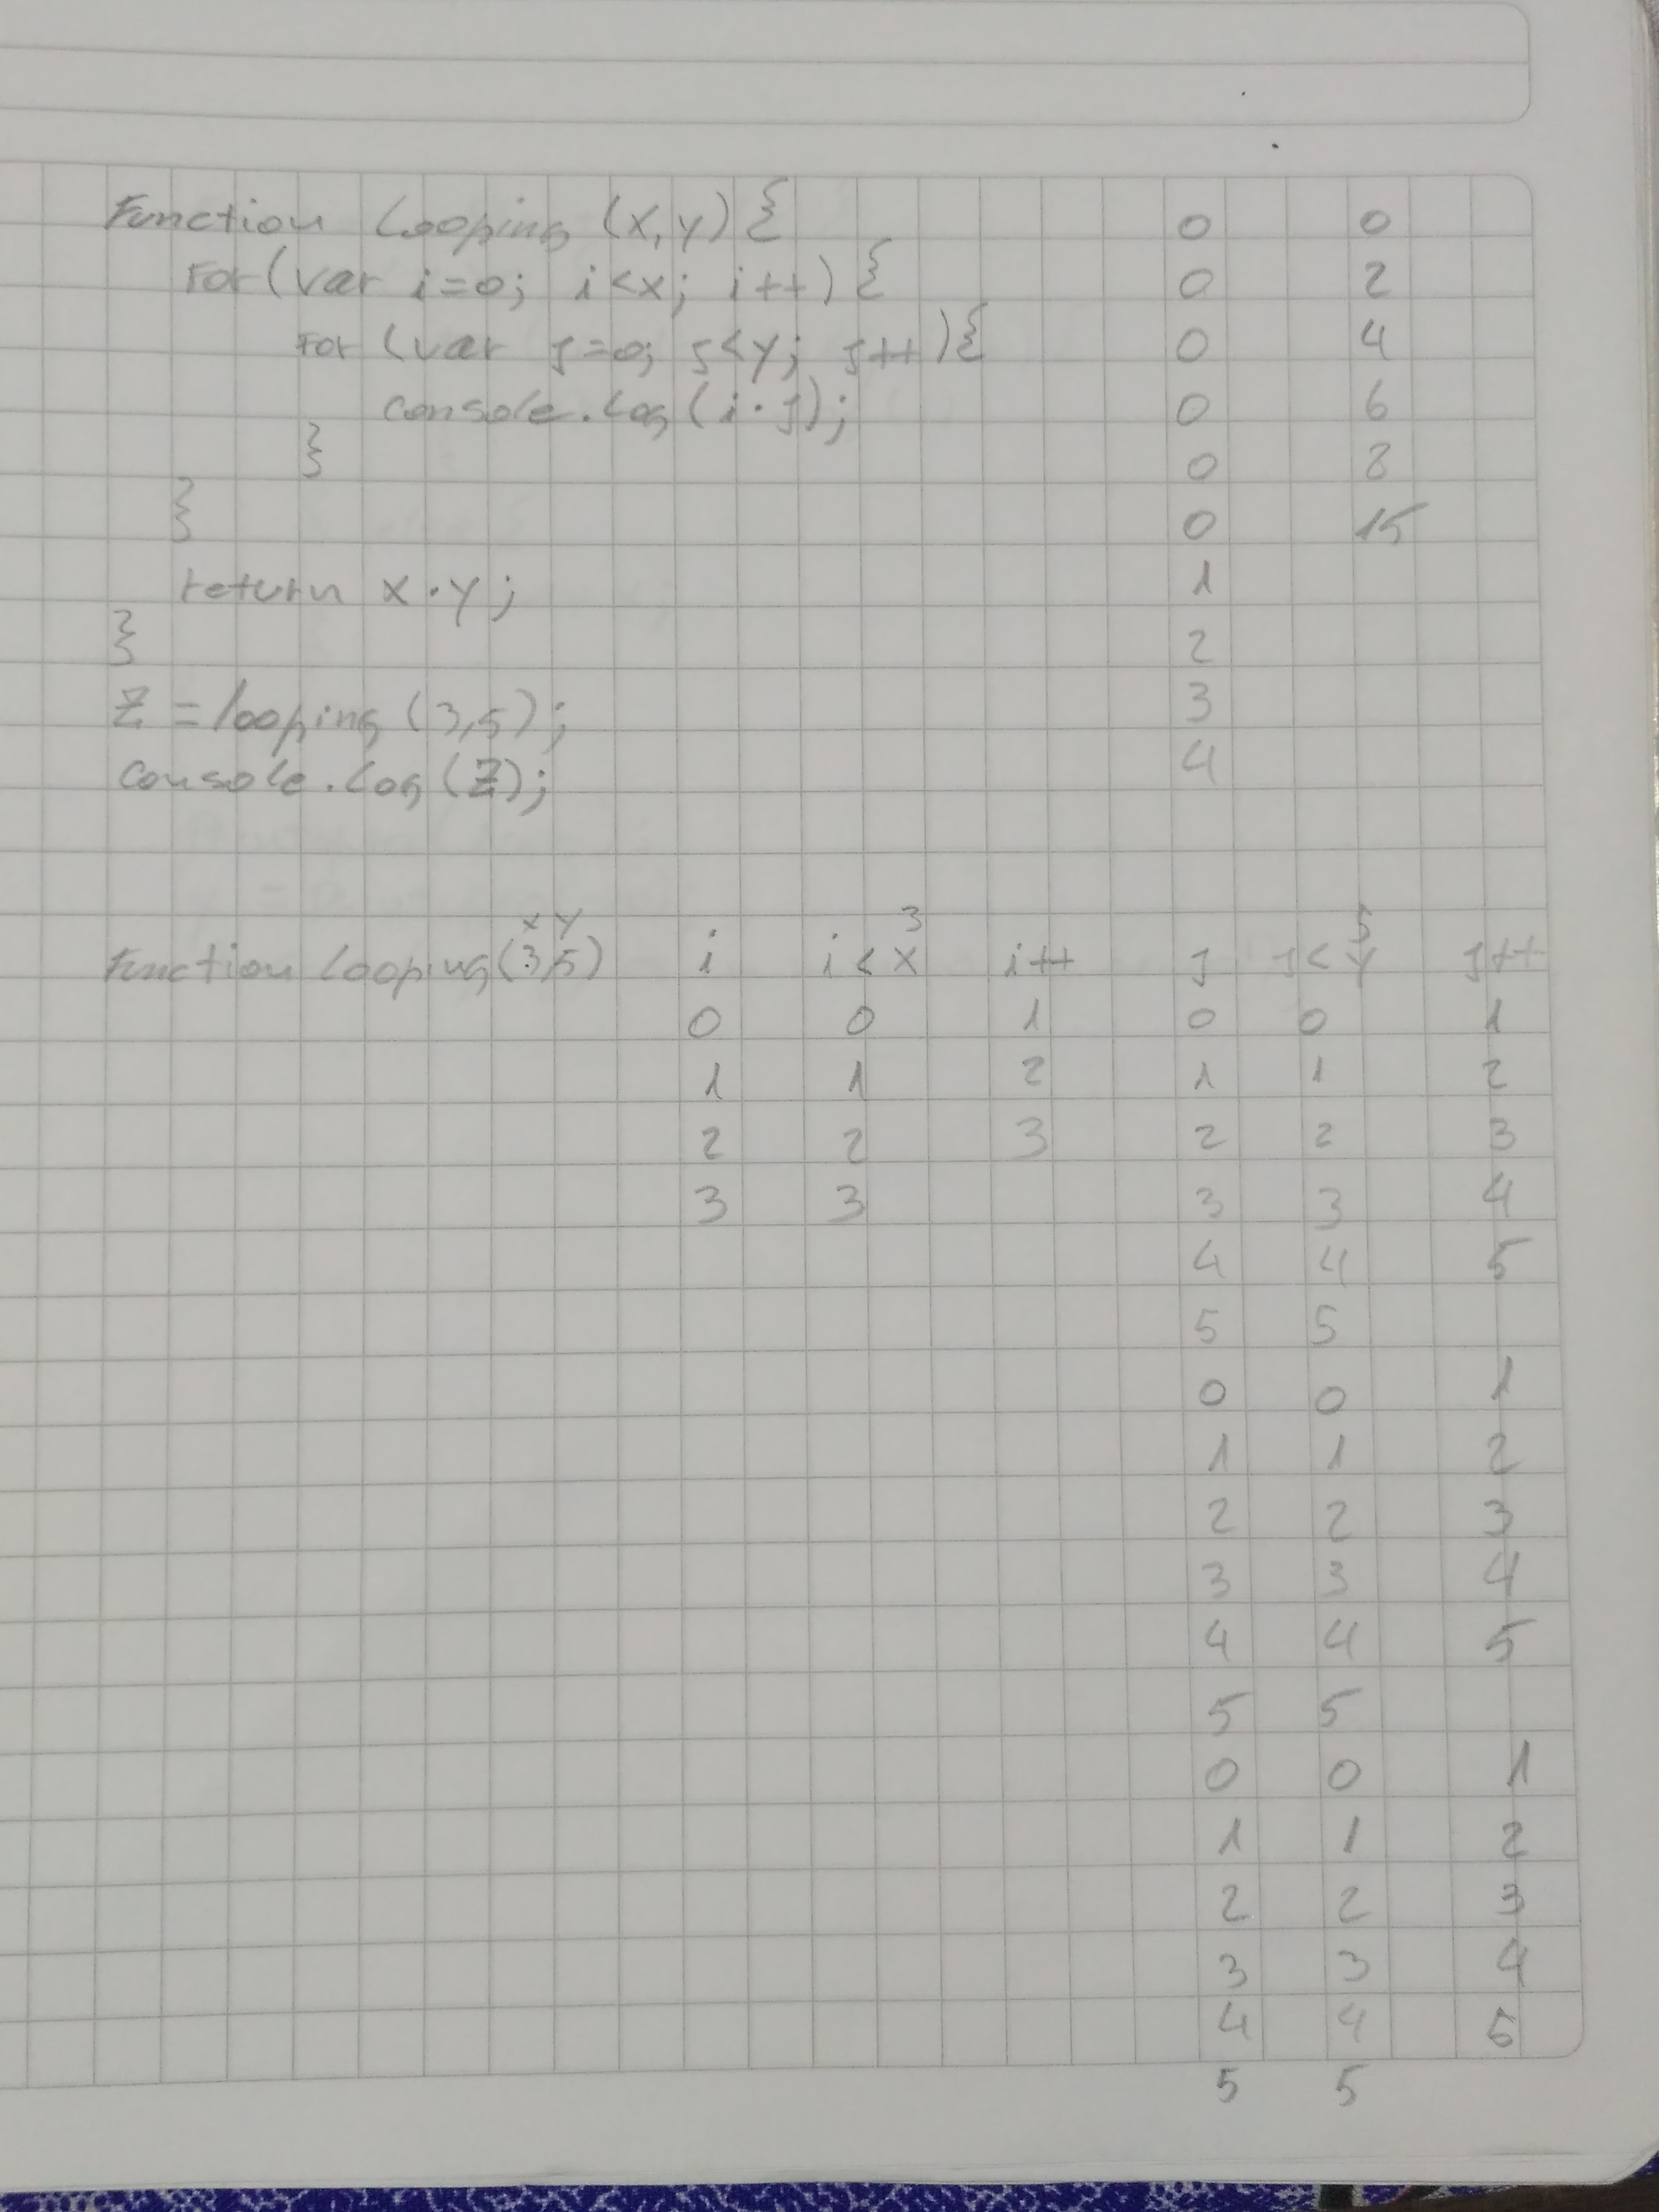 Function Looping (x,y) {
For (var i=0; i<x; i++) {
For (var j=0; j<y; j++) {
console.log (i·j);
}
}
return x·y;
}
Z = looping (3,5);
console.log (Z);
0 0
0 2
0 4
0 6
0 8
0 15
1
2
3
4
x y 3 5
Function Looping(3,5) i i<x i++ j j<y j++
0 0 1 0 0 1
1 1 2 1 1 2
2 2 3 2 2 3
3 3 3 3 4
4 4 5
5 5
0 0 1
1 1 2
2 2 3
3 3 4
4 4 5
5 5
0 0 1
1 1 2
2 2 3
3 3 4
4 4 5
5 5